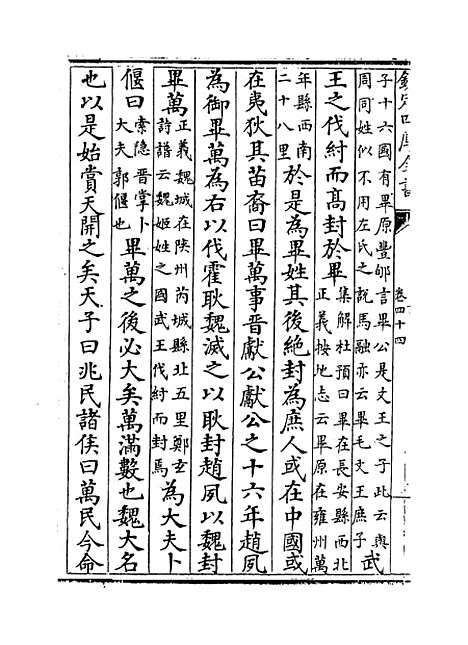 欽定四庫全書
卷四十四
子十六國有畢原豐郇言畢公是文王之子此云與
周同姓似不用左氏之說馬融亦云畢毛文王庶子
武
王之伐紂而髙封於畢
集解杜預曰畢在長安縣西北
正義按地志云畢原在雍州萬
年縣西南
二十八里
於是為畢姓其後絶封為庶人或在中國或
在夷狄其苗裔曰畢萬事晉獻公獻公之十六年趙夙
為御畢萬為右以伐霍耿魏滅之以耿封趙夙以魏封
畢萬
正義魏城在陜州芮城縣北五里鄭玄
詩譜云魏姬姓之國武王伐紂而封焉
為大夫卜
偃曰
索隱晉掌卜
大夫郭偃也
畢萬之後必大矣萬滿數也魏大名
也以是始賞天開之矣天子曰兆民諸侯曰萬民今命